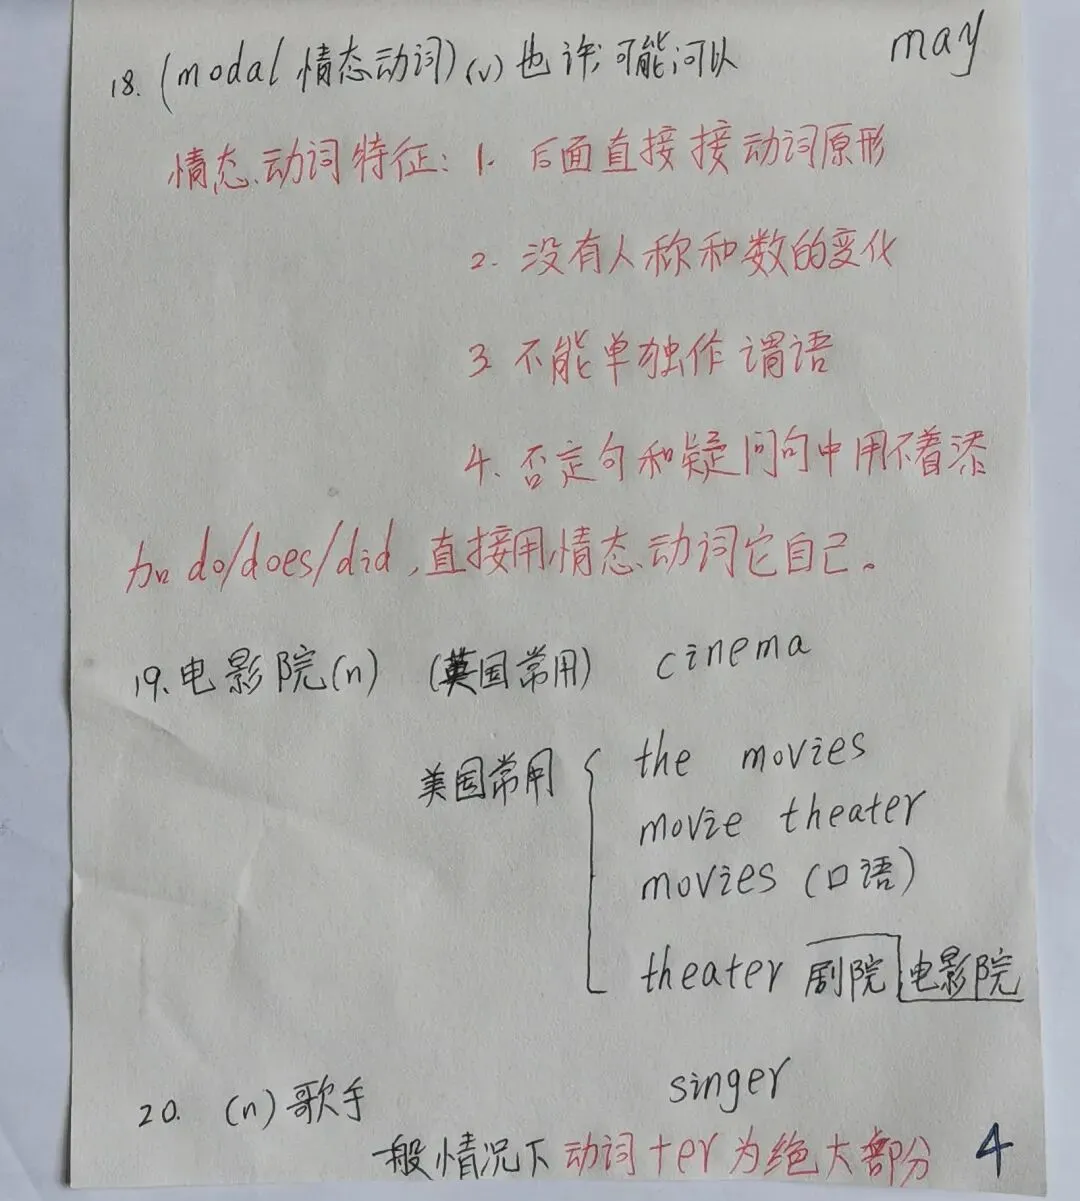 18. (modal 情态动词) (v) 也许;可能;可以 may
情态动词特征: 1. 后面直接接动词原形
2. 没有人称和数的变化
3 不能单独作谓语
4. 否定句和疑问句中用不着添
加 do/does/did, 直接用情态动词它自己。
19. 电影院(n) (英国常用) cinema
美国常用 { the movies
movie theater
movies (口语)
theater 剧院 电影院
20. (n) 歌手 singer
一般情况下 动词+er 为绝大部分 4